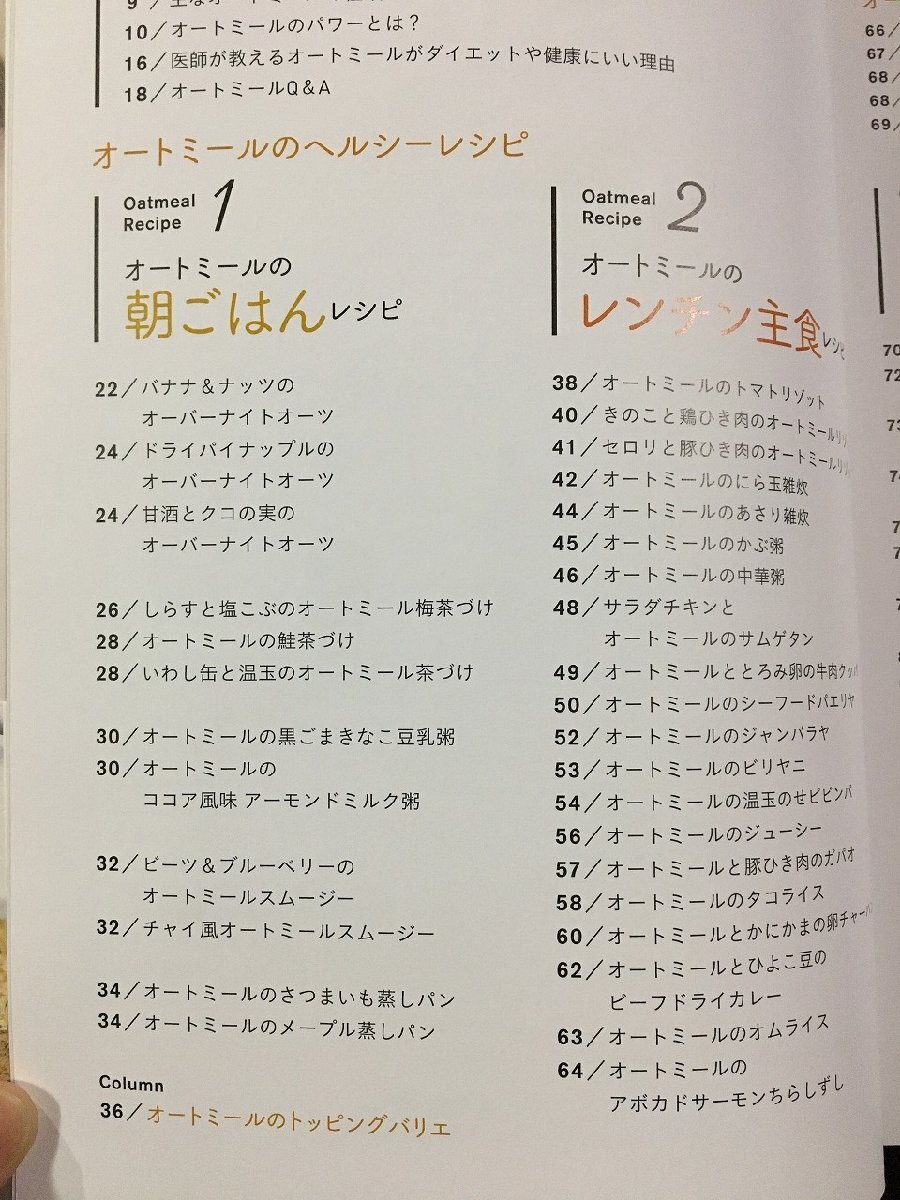 10/オートミールのパワーとは?
16/医師が教えるオートミールがダイエットや健康にいい理由
18/オートミールQ&A
オートミールのヘルシーレシピ
Oatmeal
Recipe 1
オートミールの
朝ごはんレシピ
22/バナナ&ナッツの
オーバーナイトオーツ
24/ドライパイナップルの
オーバーナイトオーツ
24/甘酒とクコの実の
オーバーナイトオーツ
26/しらすと塩こぶのオートミール梅茶づけ
28/オートミールの鮭茶づけ
28/いわし缶と温玉のオートミール茶づけ
30/オートミールの黒ごまきなこ豆乳粥
30/オートミールの
ココア風味 アーモンドミルク粥
32/ビーツ&ブルーベリーの
オートミールスムージー
32/チャイ風オートミールスムージー
34/オートミールのさつまいも蒸しパン
34/オートミールのメープル蒸しパン
Column
36/オートミールのトッピングバリエ
Oatmeal
Recipe 2
オートミールの
レンチン主食レシピ
38/オートミールのトマトリゾット
40/きのこと鶏ひき肉のオートミール
41/セロリと豚ひき肉のオートミール
42/オートミールのにら玉雑炊
44/オートミールのあさり雑炊
45/オートミールのかぶ粥
46/オートミールの中華粥
48/サラダチキンと
オートミールのサムゲタン
49/オートミールととろみ卵の牛肉クッパ
50/オートミールのシーフードパエリヤ
52/オートミールのジャンバラヤ
53/オートミールのビリヤニ
54/オートミールの温玉のせビビンバ
56/オートミールのジューシー
57/オートミールと豚ひき肉のガパオ
58/オートミールのタコライス
60/オートミールとかにかまの卵チャー
62/オートミールとひよこ豆の
ビーフドライカレー
63/オートミールのオムライス
64/オートミールの
アボカドサーモンちらしずし
66/
67/
68/
68/
69/
70
72
73